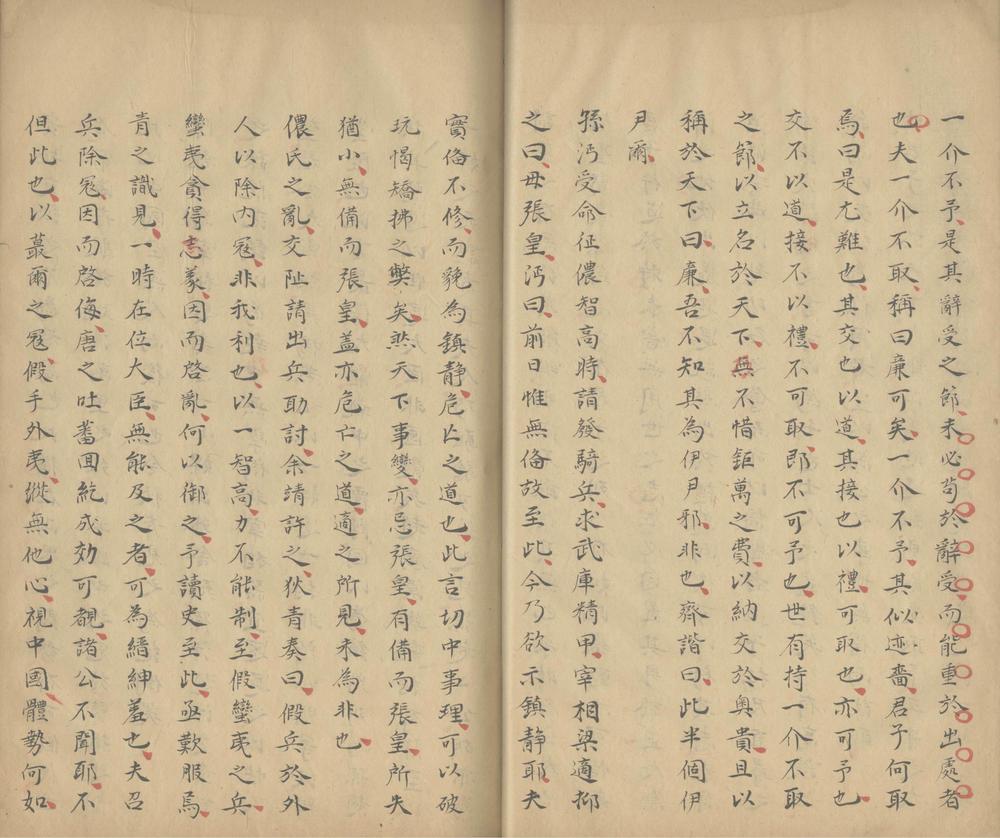 一介不予是其辭受之節未必苟於辭受而能重於出處者
也夫一介不取稱曰廉可矣一介不予其似迹嗇君子何取
焉曰是尤難也其交也以道其接也以禮可取也亦可予也
交不以道接不以禮不可取即不可予也世有持一介不取
之節以立名於天下無不惜鉅萬之費以納交於奧貴且以
稱於天下曰廉吾不知其為伊尹邪非也齊諧曰此半個伊
尹爾
孫沔受命征儂智高時請發騎兵求武庫精甲宰相梁適抑
之曰毋張皇沔曰前日惟無俻故至此今乃欲示鎮静耶夫
實俻不修而貌為鎮静危亡之道也此言切中事理可以破
玩愒矯拂之弊矣然天下事變亦忌張皇有備而張皇所失
猶小無備而張皇蓋亦危亡之道適之所見未為非也
儂氏之亂交阯請出兵助討余靖許之狄青奏曰假兵於外
人以除内冦非我利也以一智高力不能制至假蠻夷之兵
蠻夷貪得志義因而啓亂何以御之予讀史至此亟歎服焉
青之識見一時在位大臣無能及之者可為縉紳羞也夫召
兵除冦因而啓侮唐之吐蕃囬紇成効可覩諸公不聞耶不
但此也以蕞爾之冦假手外夷縱無他心視中國體勢何如